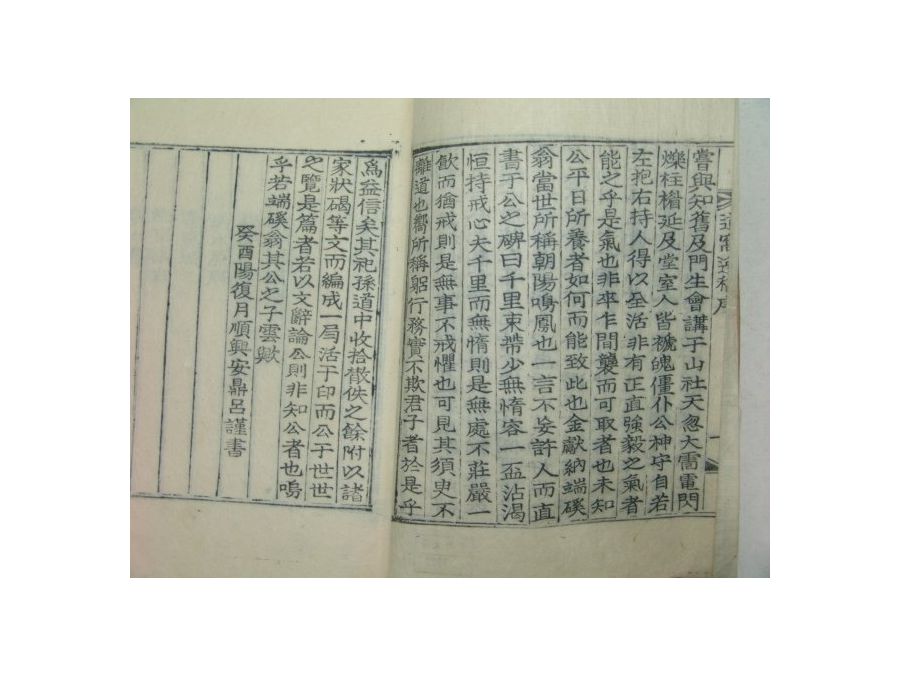 嘗與知舊及門生會講于山社天忽大雷電閃
爍柱楹延及堂室人皆褫魄僵仆公神守自若
左抱右持人得以全活非有正直強毅之氣者
能之乎是氣也非卒乍間襲而可取者也未知
公平日所養者如何而能致此也金獻納端磎
翁當世所稱朝陽鳴鳳也一言不妄許人而直
書于公之碑曰千里束帶少無惰容一盃沾渴
恒持戒心夫千里而無惰則是無處不莊嚴一
飮而猶戒則是無事不戒懼也可見其須臾不
離道也嚮所稱躬行務實不欺君子者於是乎
爲益信矣其祀孫道中收拾散佚之餘附以諸
家狀碣等文而編成一局活于印而公于世世
之覽是篇者若以文辭論公則非知公者也嗚
乎若端磎翁其公之子雲歟
癸酉陽復月順興安鼎呂謹書